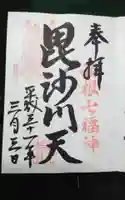 奉拝
根七福神
毘沙門天
平成三十一年
三月三日